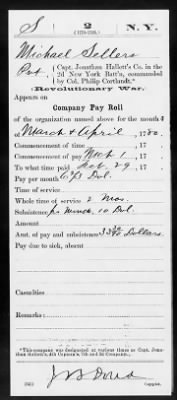 S 2 N. Y.
(1776-1783.)
Michael Sellers
Pvt. , Capt. Jonathan Hallett's Co. in the
2d New York Batt'n, commanded
by Col. Philip Cortlandt.*
(Revolutionary War.)
Appears on
Company Pay Roll
of the organization named above for the months
of March & April, 1780.
Commencement of time , 17
Commencement of pay , 17
To what time paid , 17
Pay per month 6 2/3 Dol.
Time of service
Whole time of service 2 Mos.
Subsistence 10 Dol.
Amount
Amt. of pay and subsistence Dollars
Pay due to sick, absent
Casualties
Remarks:
*This company was designated at various times as Capt. Jonathan
Copyist.